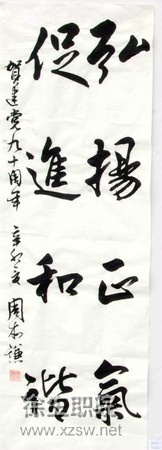 弘揚正氣
促進和諧
賀建党九十周年
辛卯夏 周本谦
徐州职品
www.xzsw.net